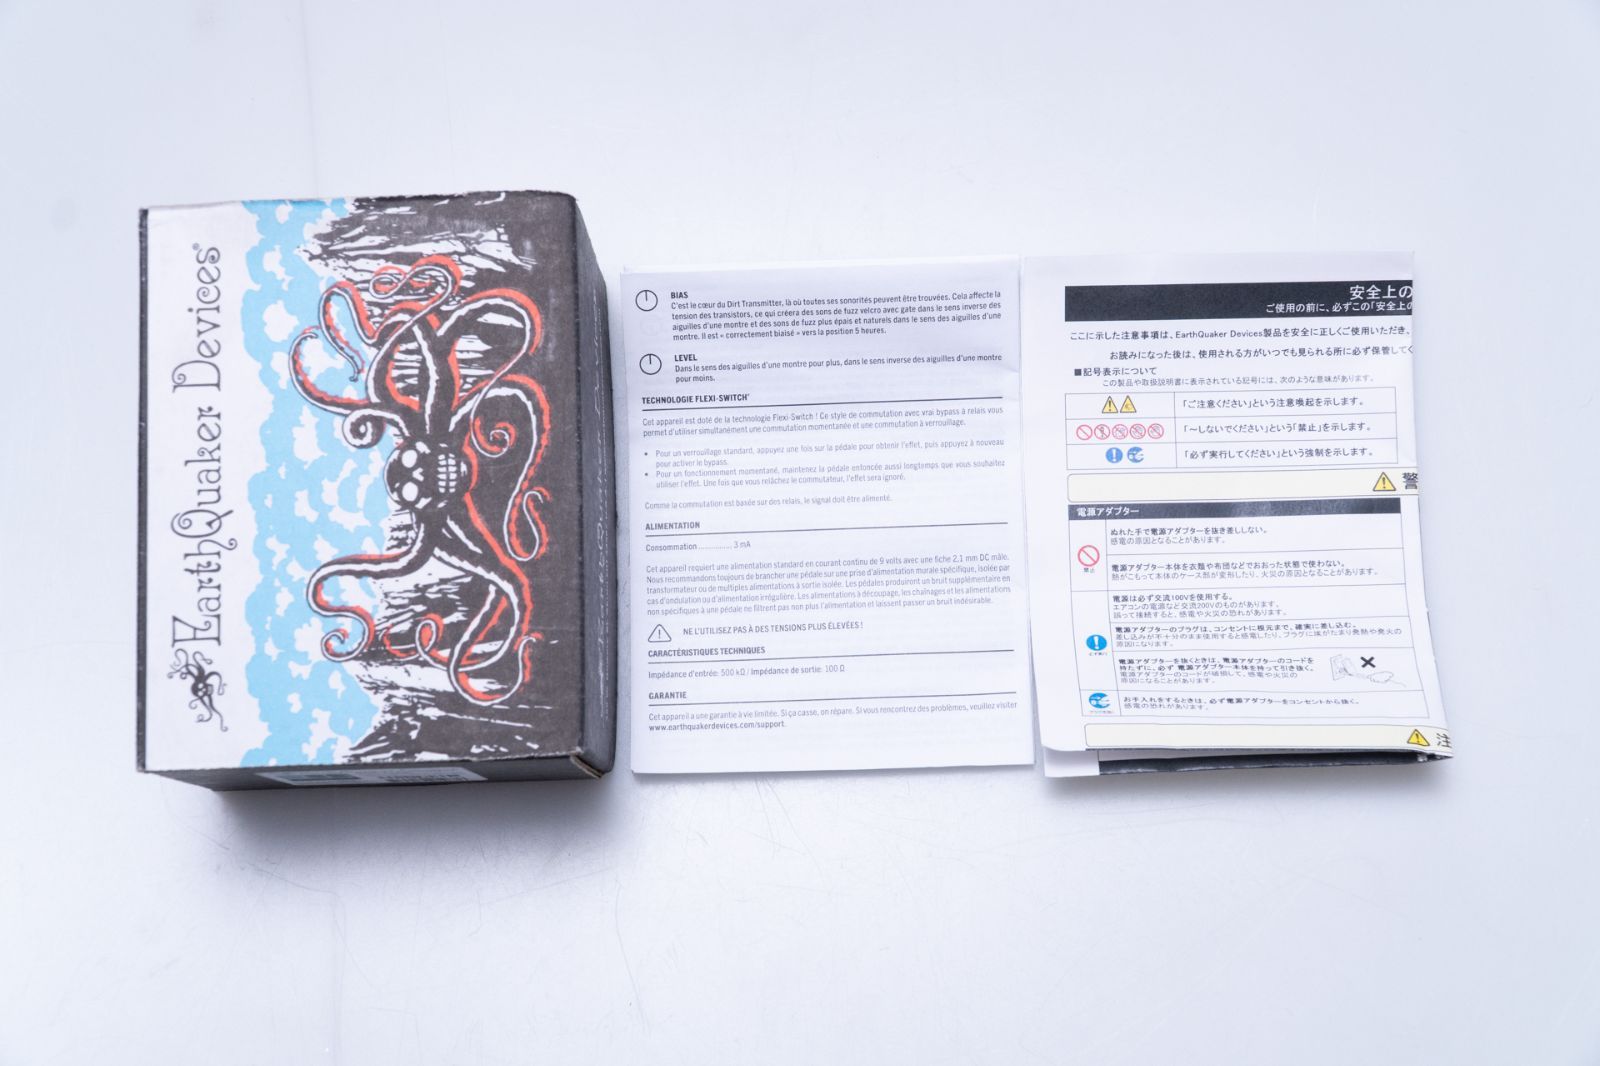 EarthQuaker Devices®
BIAS
C'est le cœur du Dirt Transmitter, là où toutes ses sonorités peuvent être trouvées. Cela affecte la
tension des transistors, ce qui créera des sons de fuzz velcro avec gate dans le sens inverse des
aiguilles d'une montre et des sons de fuzz plus épais et naturels dans le sens des aiguilles d'une
montre. Il est « correctement biaisé » vers la position 5 heures.
LEVEL
Dans le sens des aiguilles d'une montre pour plus, dans le sens inverse des aiguilles d'une montre
pour moins.
TECHNOLOGIE FLEXI-SWITCH
Cet appareil est doté de la technologie Flexi-Switch ! Ce style de commutation avec vrai bypass à relais vous
permet d'utiliser simultanément une commutation momentanée et une commutation à verrouillage.
• Pour un verrouillage standard, appuyez une fois sur la pédale pour obtenir l'effet, puis appuyez à nouveau
pour activer le bypass.
• Pour un fonctionnement momentané, maintenez la pédale enfoncée aussi longtemps que vous souhaitez
utiliser l'effet. Une fois que vous relâchez le commutateur, l'effet sera ignoré.
Comme la commutation est baxée sur des relais, le signal doit être alimenté.
ALIMENTATION
Consommation .............. 3 mA
Cet appareil requiert une alimentation standard en courant continu de 9 volts avec une fiche 2,1 mm DC mâle.
Nous recommandons toujours de brancher une pédale sur une prise d'alimentation murale spécifique, isolée par
transformateur ou de multiples alimentations à sortie isolée. Les pédales produiront un bruit supplémentaire en
cas d'ondulation ou d'alimentation irrégulière. Les alimentations à découpage, les chaînages et les alimentations
non spécifiques à une pédale ne filtrent pas non plus l'alimentation et laissent passer un bruit indésirable.
NE L'UTILISEZ PAS À DES TENSIONS PLUS ÉLEVÉES !
CARACTÉRISTIQUES TECHNIQUES
Impédance d'entrée: 500 kΩ / Impédance de sortie: 100 Ω
GARANTIE
Cet appareil a une garantie à vie limitée. Si ça casse, on répare. Si vous rencontrez des problèmes, veuillez visiter
www.earthquakerdevices.com/support.
安全上の
ご使用の前に、必ずこの「安全上の
ここに示した注意事項は、EarthQuaker Devices製品を安全に正しくご使用いただき、
お読みになった後は、使用される方がいつでも見られる所に必ず保管してく
■記号表示について
この製品や取扱説明書に表示されている記号には、次のような意味があります。
「ご注意ください」という注意喚起を示します。
「～しないでください」という「禁止」を示します。
「必ず実行してください」という強制を示します。
警
電源アダプター
禁止
ぬれた手で電源アダプターを抜き差ししない。
感電の原因となることがあります。
電源アダプター本体を衣類や布団などでおおった状態で使わない。
熱がこもって本体のケース部が変形したり、火災の原因となることがあります。
電源は必ず交流100Vを使用する。
エアコンの電源など交流200Vのものがあります。
誤って接続すると、感電や火災の恐れがあります。
電源アダプターのプラグは、コンセントに根元まで、確実に差し込む。
差し込みが不十分のまま使用すると感電したり、プラグに埃がたまり発熱や発火の
原因になります。
電源アダプターを抜くときは、電源アダプターのコードを
持たずに、必ず 電源アダプター本体を持って引き抜く。
電源アダプターのコードが破損して、感電や火災の
原因になることがあります。
お手入れをするときは、必ず電源アダプターをコンセントから抜く。
感電の恐れがあります。
注